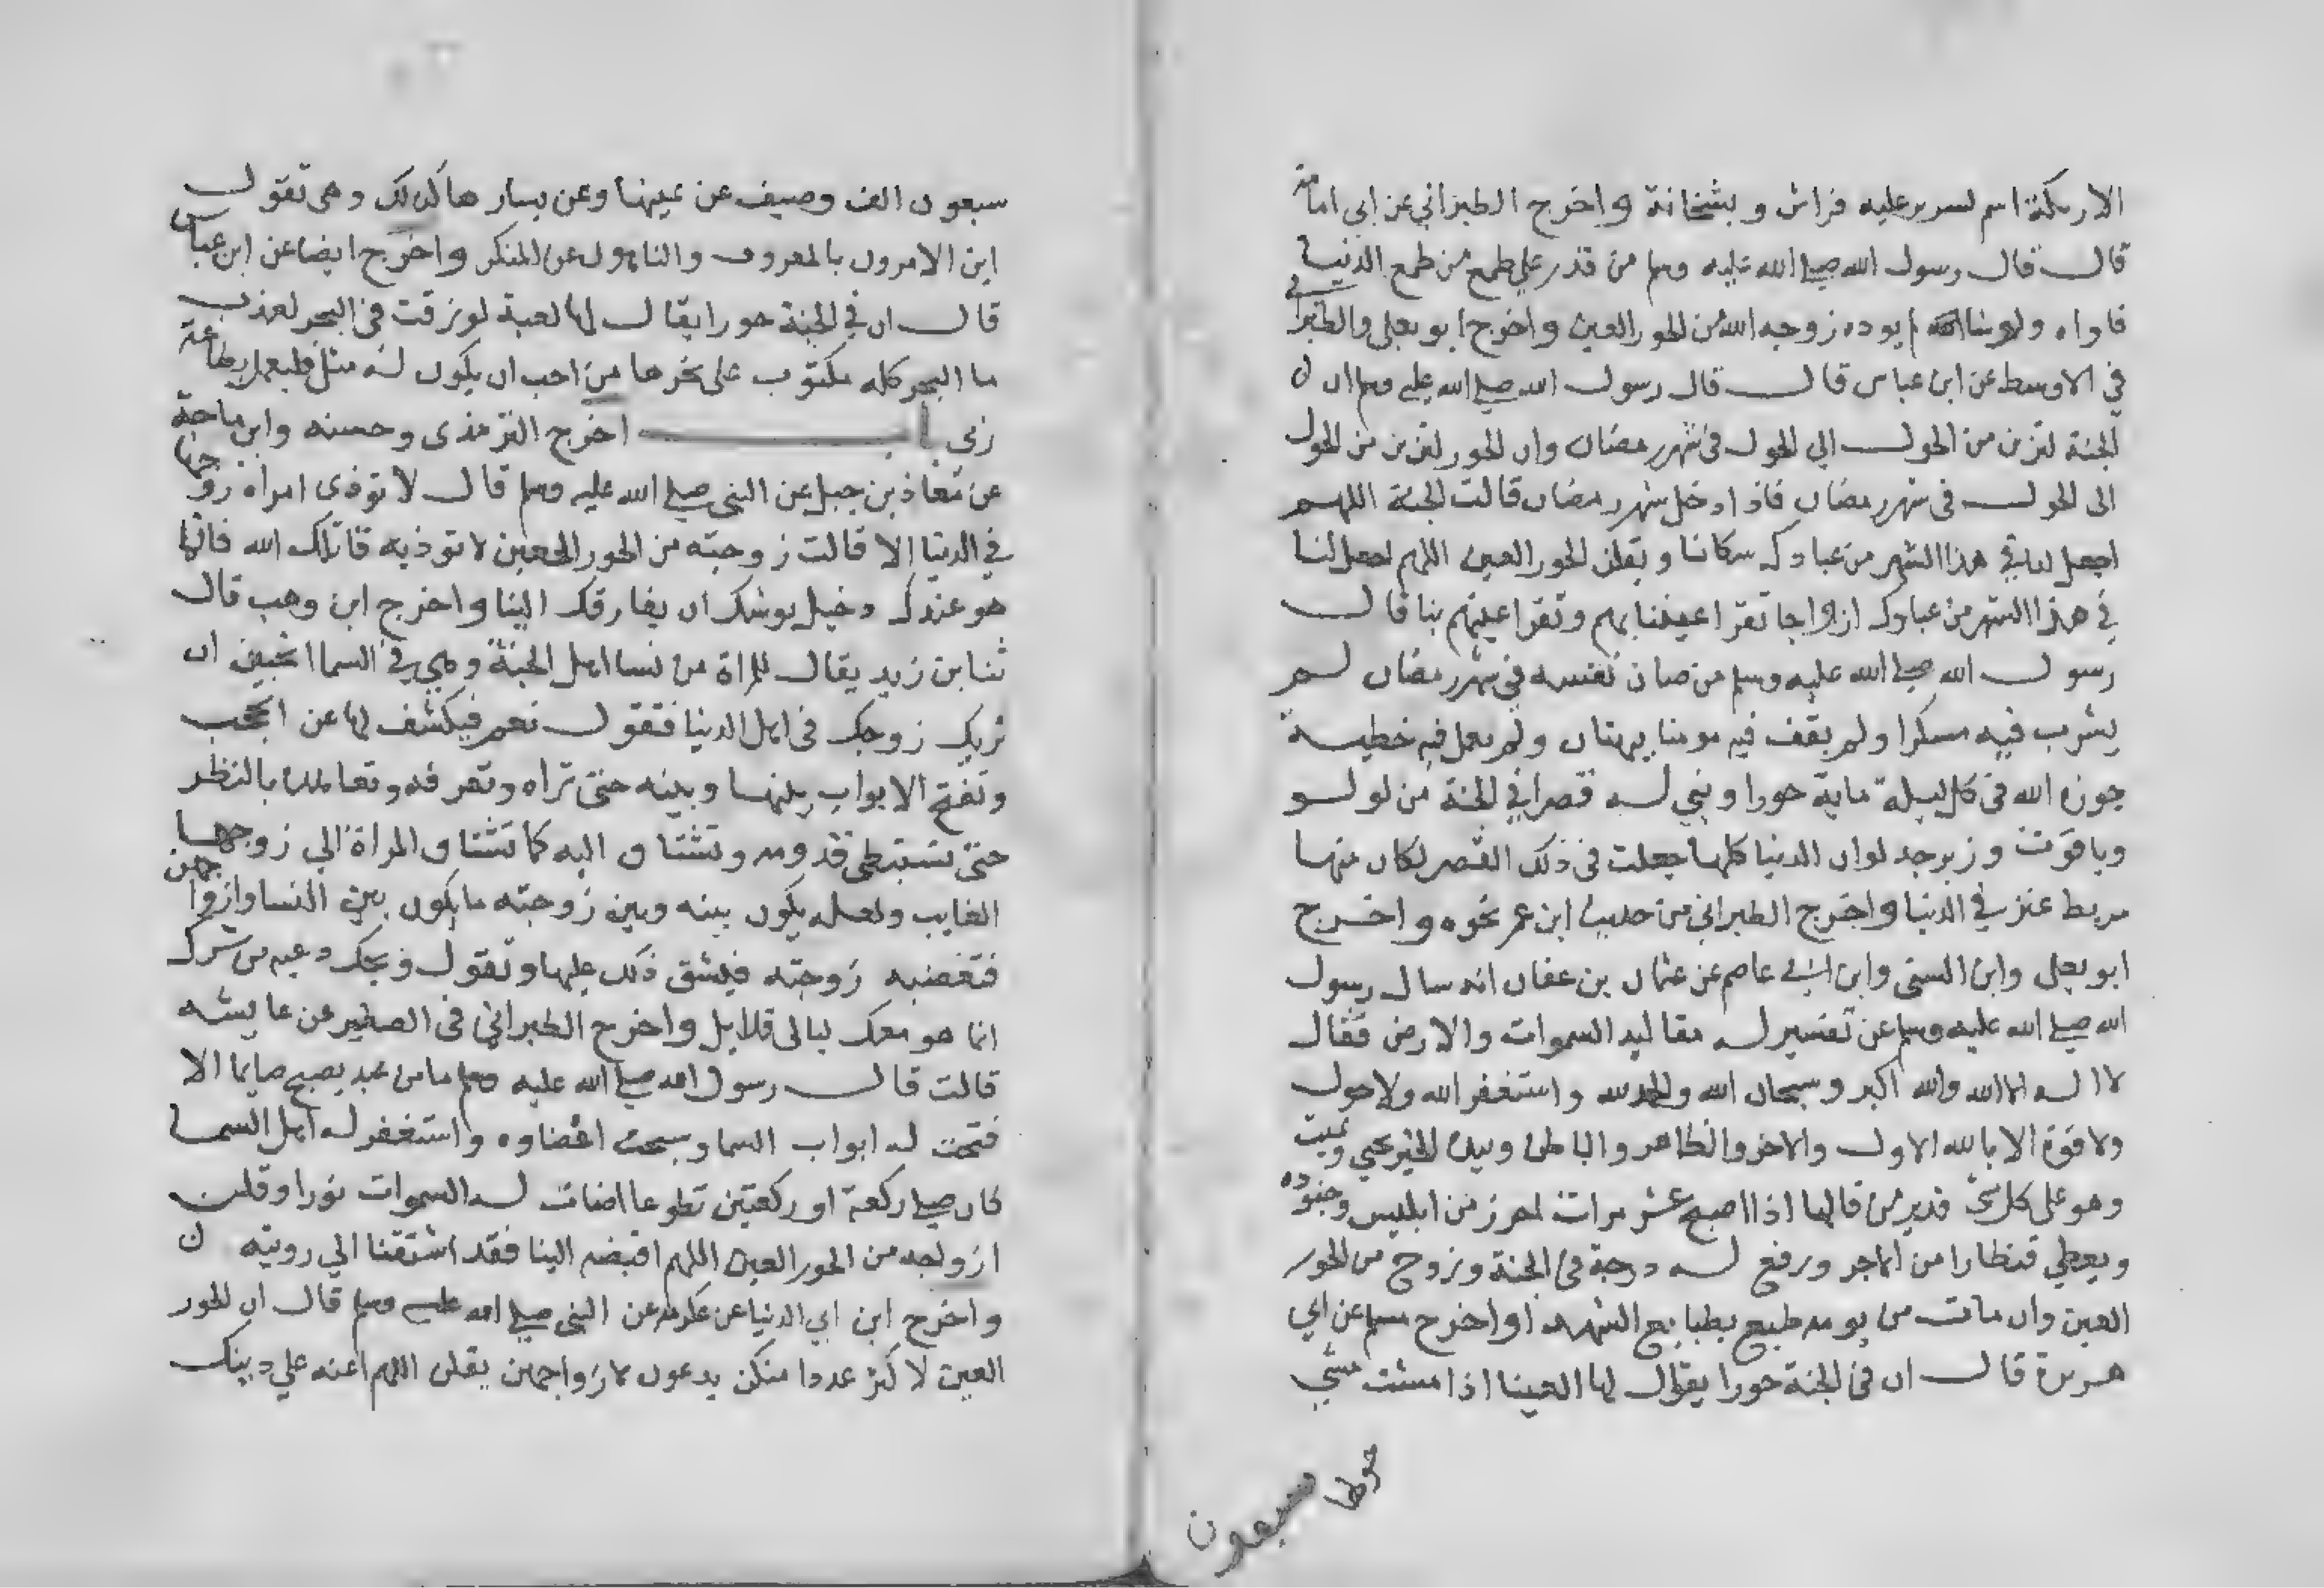 الاريكة اسم لسرير عليه فراش و بشخانة واخرج الطبراني عن ابي امامة
قال قال رسول الله صلي الله عليه وسلم من قدر علي طمع من طمع الدنيا
فاواه ولو شا الله لم يوده زوجه الله من الحور العين واخرج ابو يعلي والطبراني
في الاوسط عن ابن عباس قال قال رسول الله صلي الله عليه وسلم ان
الجنة لتزين من الحول الي الحول في شهر رمضان وان الحور لتزين من الحول
الى الحول في شهر رمضان فاذا دخل شهر رمضان قالت الجنة اللهم
اجعل لنا في هذا الشهر من عبادك سكانا و يقلن الحور العين اللهم اجعل لنا
في هذا الشهر من عبادك ازواجا تقر اعيننا بهم وتقر اعينهم بنا قال
رسول الله صلي الله عليه وسلم من صان نفسه في شهر رمضان لم
يشرب فيه مسكرا ولم يقف فيه مومنا ببهتان ولم يعمل فيه خطيـة
جوزه الله في كل ليلة ماية حورا وبني له قصرا في الجنة من لولو
وياقوت وزبرجد لوان الدنيا كلها جعلت في ذلك القصر لكان منها
مربط عنز في الدنيا واخرج الطبراني من حديث ابن عمر نحوه واخرج
ابو يعلي وابن السني وابن ابي عاصم عن عثمان بن عفان انه سال رسول
الله صلي الله عليه وسلم عن تفسير له مقاليد السموات والارض فقال
لا اله الا الله والله اكبر وسبحان الله والحمد لله واستغفر الله ولا حول
ولا قوة الا بالله الاول والاخر والظاهر والباطن وبيده الخير يحيي ويميت
وهو على كل شئ قدير من قالها اذا اصبح عشر مرات احرز من ابليس وجنوده
ويعطي قنطارا من الاجر ويرفع له درجة في الجنة ويزوج من الحور
العين وان مات من يومه طبع بطابع الشهدا واخرج مسلم عن ابي
هريرة قال ان في الجنة حورا يقال لها العينا اذا مشت مشي
حولها سبعون
سبعون الف وصيف عن يمينها وعن يسارها كذلك وهى تقول
اين الامرون بالمعروف والناهون عن المنكر واخرج ايضا عن ابن عباس
قال ان في الجنة حورا يقال لها لعبة لو بزقت في البحر لعذب
ما البحر كله مكتوب على نحرها من احب ان يكون له مثلي فليعمل بطاعة
ربى باب اخرج الترمذى وحسنه وابن ماجة
عن معاذ بن جبل عن النبى صلي الله عليه وسلم قال لا توذى امراة زوجها
في الدنيا الا قالت زوجته من الحور العين لا توذيه قاتلك الله فانما
هو عندك دخيل يوشك ان يفارقك الينا واخرج ابن وهب قال
ثنا ابن زيد يقال للمراة من نسا اهل الجنة وهي في السما اتحبين ان
نريك زوجك في اهل الدنيا فتقول نعم فيكشف لها عن الحجب
وتفتح الابواب بينها وبينه حتى تراه وتعرفه وتعاهده بالنظر
حتى تستبطى قدومه وتشتاق اليه كما تشتاق المراة الي زوجها
الغايب ولعله يكون بينه وبين زوجته ما يكون بين النسا وازواجهن
فتغضبه زوجته فيشق ذلك عليها وتقول ويحك دعيه من شرك
انما هو معك ليالى قلايل واخرج الطبراني في الصغير عن عايشه
قالت قال رسول الله صلي الله عليه وسلم ما من عبد يصبح صايما الا
فتحت له ابواب السما وسبحت اعضاوه واستغفر له اهل السما
فان صلي ركعة او ركعتين تطوعا اضات له السموات نورا وقلن
ازواجه من الحور العين اللهم اقبضه الينا فقد اشتقنا الي رويته
واخرج ابن ابي الدنيا عن عكرمة عن النبى صلي الله عليه وسلم قال ان الحور
العين لا كثر عددا منكن يدعون لازواجهن يقلن اللهم اعنه علي دينك